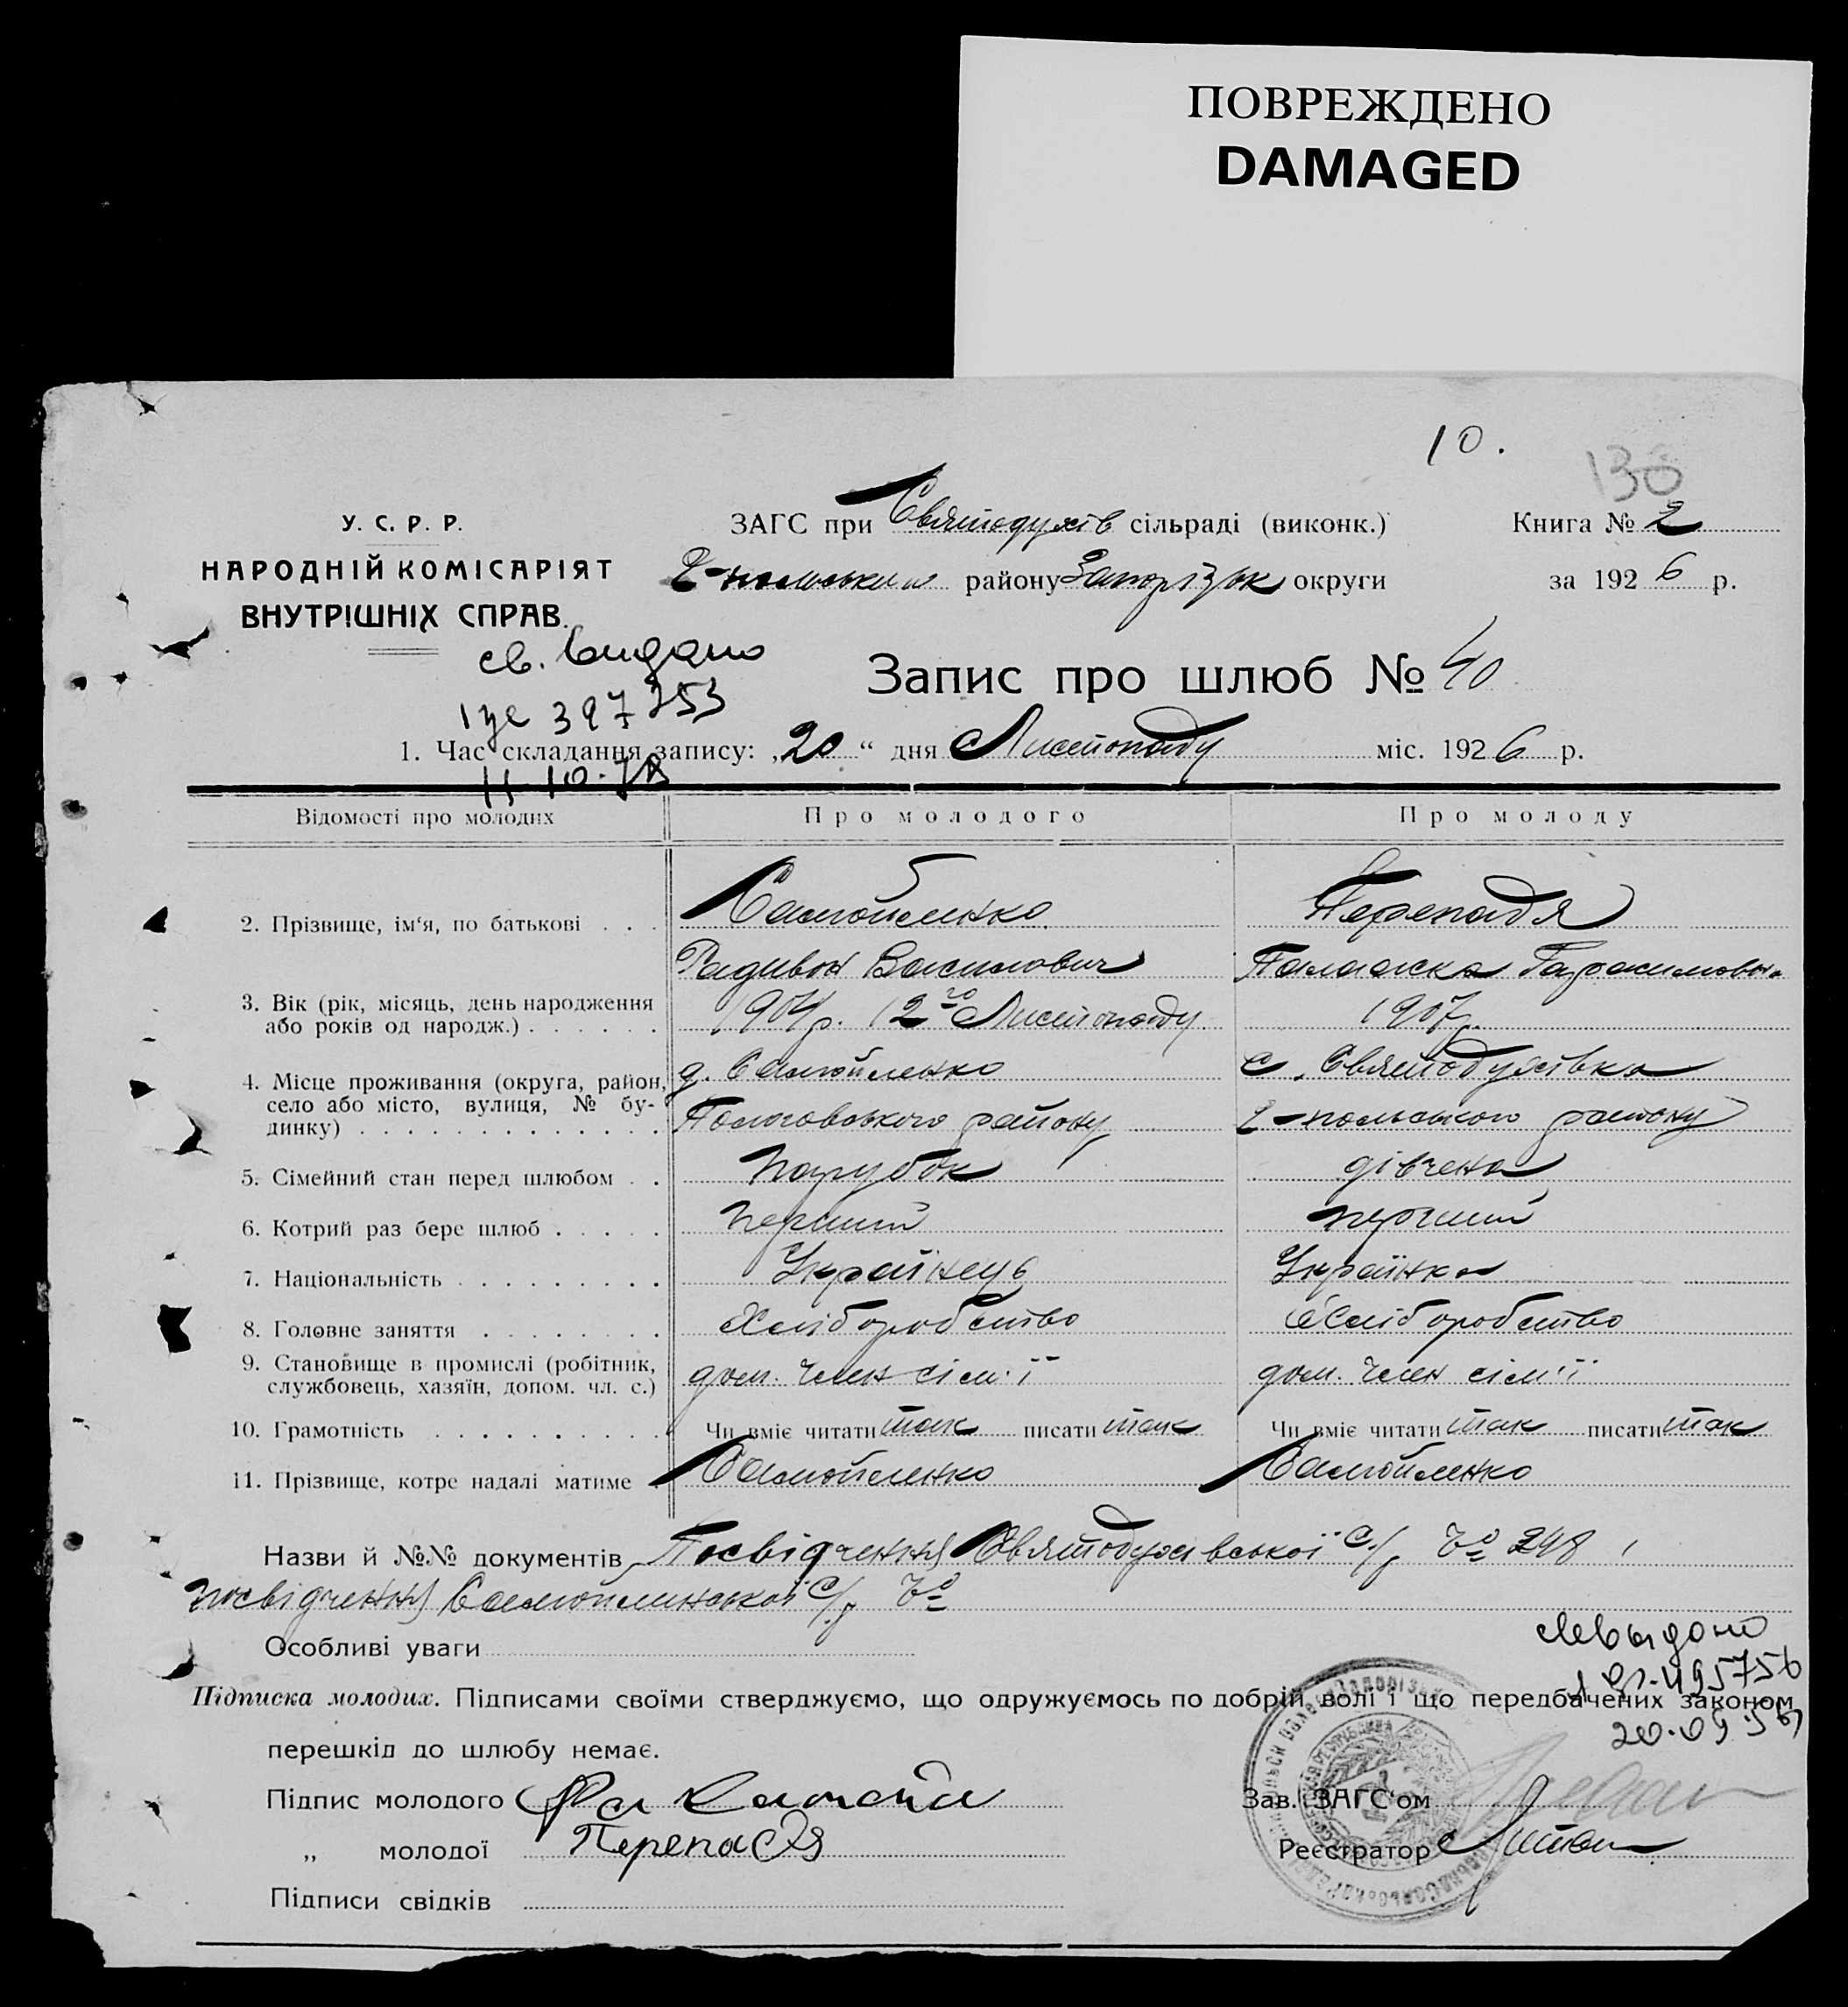 ПОВРЕЖДЕНО
DAMAGED
10.
130
У. С. Р. Р.
НАРОДНІЙ КОМІСАРІЯТ
ВНУТРІШНІХ СПРАВ.
ЗАГС при Святодухів сільраді (виконк.)
району Запорізьк округи
Книга № 2
за 1926 р.
св. видано
397253
11.10.
Запис про шлюб № 40
1. Час складання запису: „20“ дня Листопаду міс. 1926 р.
Відомості про молодих
Про молодого
Про молоду
2. Прізвище, ім'я, по батькові . . .
Самойленко
Перепадя
Радивон Василович
Палажка Гарасимовна
3. Вік (рік, місяць, день народження
або років од народж.) . . . . . .
1904р. 12го Листопаду
1907р.
4. Місце проживання (округа, район,
село або місто, вулиця, № бу-
динку) . . . . . . . . . . . . .
д. Самойленко
Пологовського району
с. Святодухівка
г-польського району
5. Сімейний стан перед шлюбом . .
парубок
дівчена
6. Котрий раз бере шлюб . . . . .
перший
перший
7. Національність . . . . . . . . .
Українець
Українка
8. Головне заняття . . . . . . . .
Хліборобство
Хліборобство
9. Становище в промислі (робітник,
службовець, хазяїн, допом. чл. с.)
доп. член сім'ї
доп. член сім'ї
10. Грамотність . . . . . . . . . .
Чи вміє читати так писати так
Чи вміє читати так писати так
11. Прізвище, котре надалі матиме .
Самойленко
Самойленко
Назви й №№ документів Посвідчення Святодухівської с/р № 248,
посвідчення Самойлинської с/р №
Особливі уваги
495756
20.09
Підписка молодих. Підписами своїми стверджуємо, що одружуємось по добрій волі і що передбачених законом
перешкід до шлюбу немає.
Підпис молодого
„ молодої Перепадя
Підписи свідків
Зав. ЗАГС'ом
Реєстратор